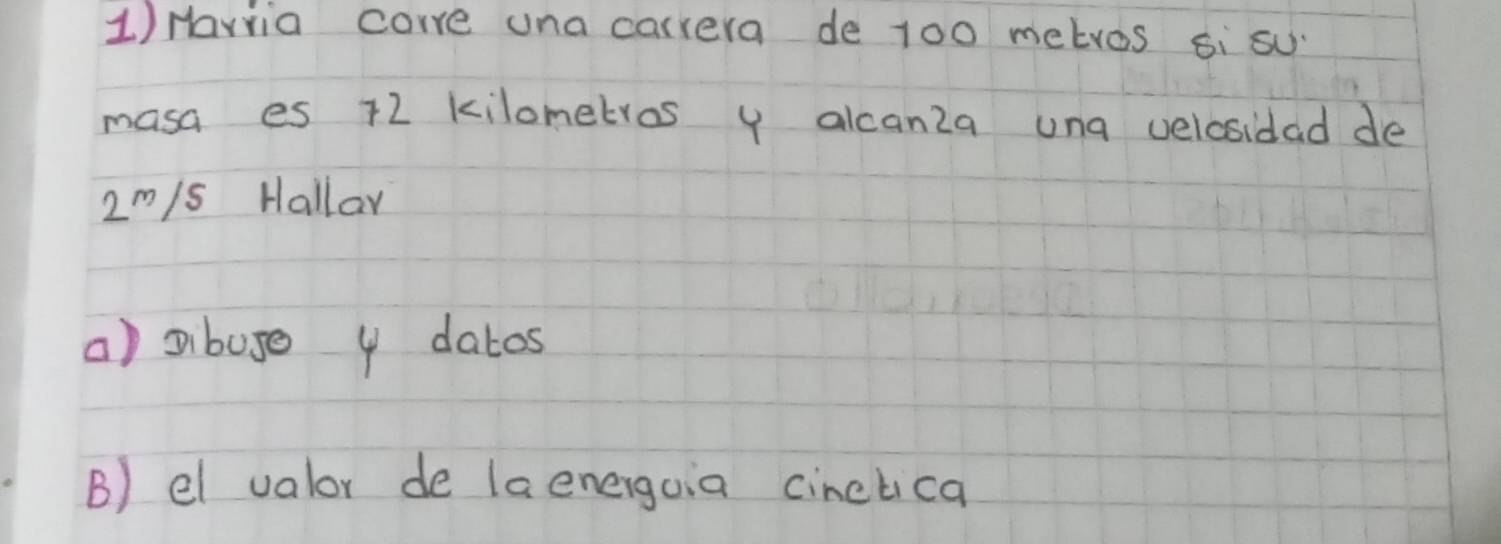 1) Marria corre una carrera de 100 metros si su
masa es 72 Kilometros y alcanza una velosidad de
2m/s Hallar
a) Dibujo y datos
B) el valor de la energuia cinetica